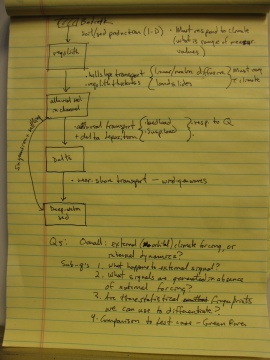 Bedrock
soil/sed production (1-D) - Must respond to climate
(what is range of
values)
regolith
hillslope transport {linear/nonlinear diffusive } Must vary
regolith thickness {landslides } climate
alluvial sed
in channel
alluvial transport {bedload } resp to Q
+ delta deposition {suspload
Delta
near-shore transport - wind-generated
Deep-water
sed
Qs: Overall: external (orbital) climate forcing, or
internal dynamics?
Sub-qs 1. What happens to external signal?
2. What signals are generated in absence
of external forcing?
3. Are there statistical fingerprints
we can use to differentiate?
4. Comparison to test case - Green River